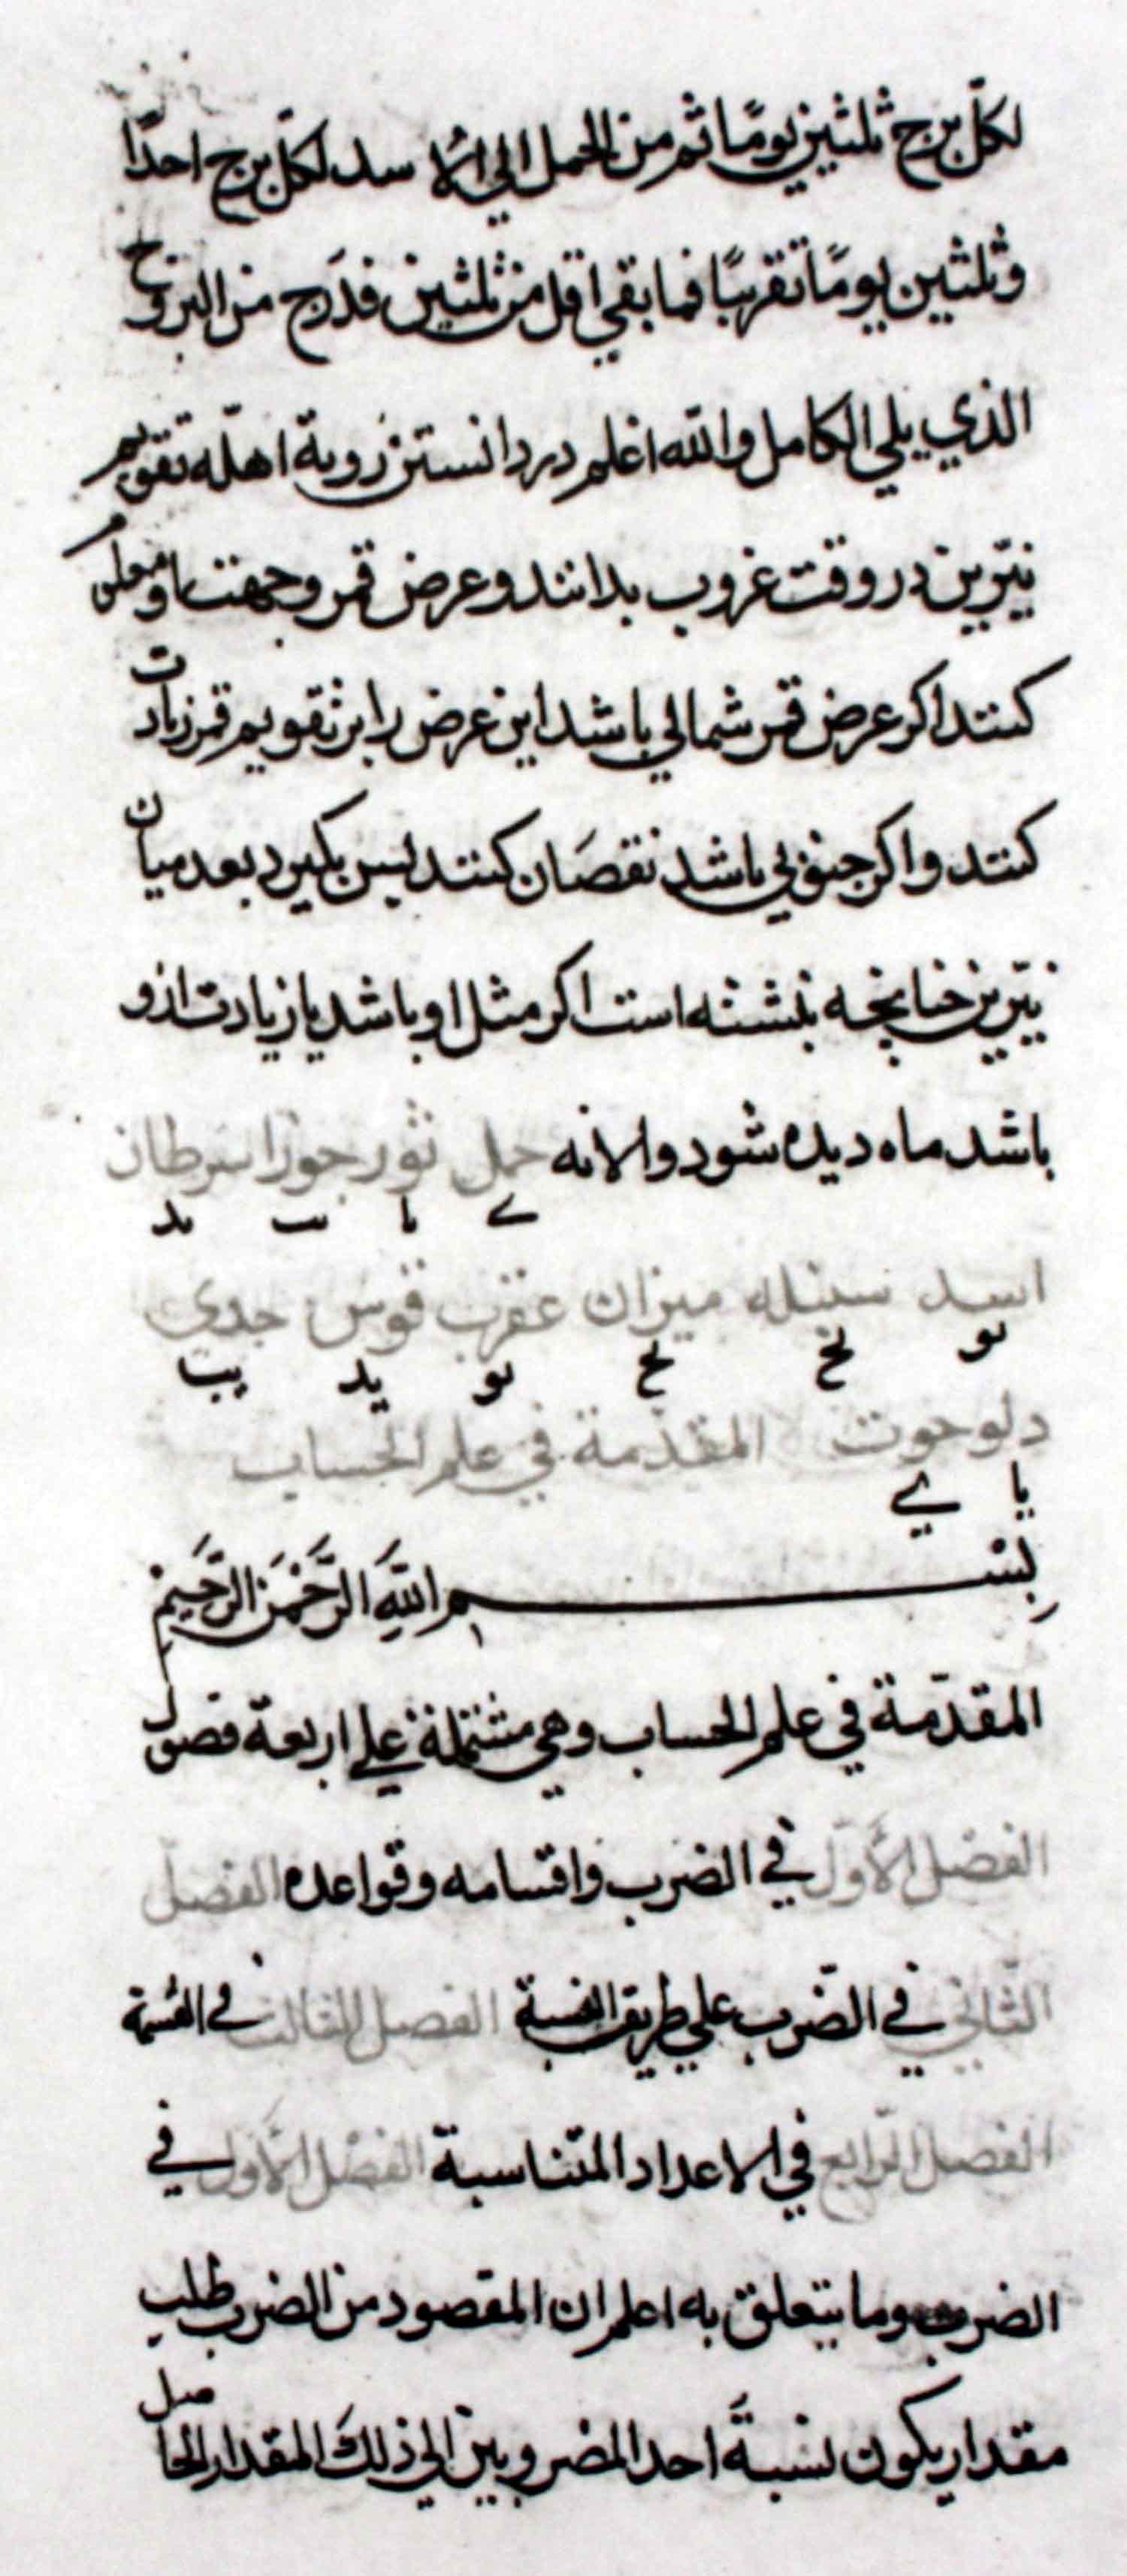 لكلّ برج ثلثين يومًا ثم من الحمل الي الاسد لكلّ برج احدًا
وثلثين يومًا تقريبًا فما بقي اقل من ثلثين فدَرج من البروج
الذي يلي الكامل والله اعلم در دانستن رؤية اهلّه تقويم
نيّرين در وقت غروب بدانند وعرض قمر وجهت او معلوم
كنند اكر عرض قمر شمالي باشد اين عرض را بر تقويم قمر زيادت
كنند واكر جنوبي باشد نقصَان كنند بس بكيرد بعد ميان
نيّرين جنانجه نبشته است اكر مثل او باشد يا زيادت ازو
باشد ماه ديده شود والا نه حمل ثور جوزا سرطان
ي يا يب يد
اسد سنبله ميزان عقرب قوس جدي
يو يح يح يو يد يب
دلو حوت المقدّمة في علم الحساب
يا ي
بِسْم اللهِ الرَّحْمَنِ الرَّحِيمِ
المقدّمة في علم الحساب وهي مشتملة علي اربعة فصول
الفصل الأوّل في الضرب واقسامه وقواعده الفصل
الثّاني في الضّرب علي طريق النسبة الفصل الثالث في القسمة
الفصل الرّابع في الاعداد المتناسبة الفصْل الأول في
الضرب وما يتعلق به اعلم ان المقصود من الضرب طلب
مقدار يكون نسبةَ احد المضروبين الي ذلكَ المقدار الحاصل